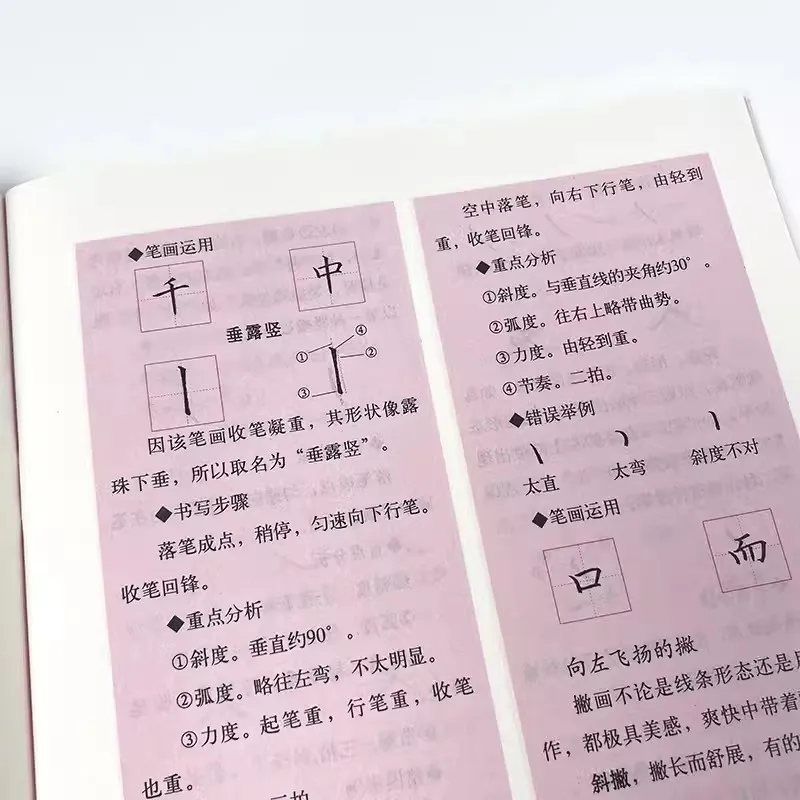 ◆笔画运用
千 中
垂露竖
① ④ ② ③
因该笔画收笔凝重，其形状像露
珠下垂，所以取名为“垂露竖”。
◆书写步骤
落笔成点，稍停，匀速向下行笔。
收笔回锋。
◆重点分析
①斜度。垂直约90°。
②弧度。略往左弯，不太明显。
③力度。起笔重，行笔重，收笔
也重。
二拍
空中落笔，向右下行笔，由轻到
重，收笔回锋。
◆重点分析
①斜度。与垂直线的夹角约30°。
②弧度。往右上略带曲势。
③力度。由轻到重。
④节奏。二拍。
◆错误举例
太直 太弯 斜度不对
◆笔画运用
口 而
向左飞扬的撇
撇画不论是线条形态还是
作，都极具美感，爽快中带着
斜撇，撇长而舒展，有的